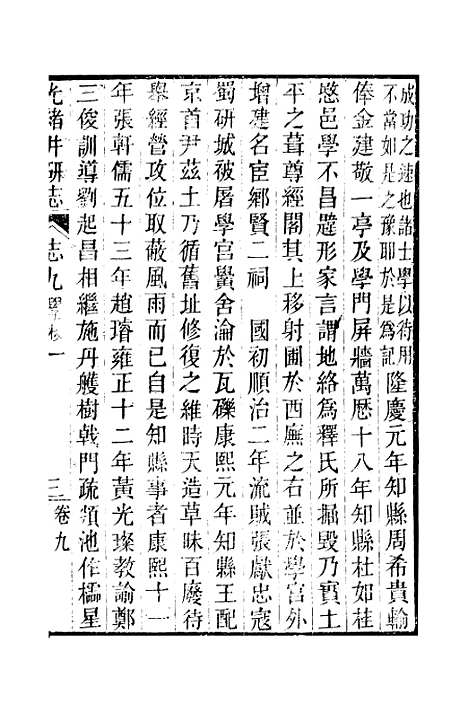 成功之速也諸士學以待用
不當如是之豫耶於是爲記
隆慶元年知縣周希貴輸
俸金建敬一亭及學門屏牆萬歷十八年知縣杜如桂
愍邑學不昌聽形家言謂地絡爲釋氏所攝毀乃實土
平之葺尊經閣其上移射圃於西廡之右並於學官外
增建名宦鄉賢二祠　國初順治二年流賊張獻忠寇
蜀研城被屠學宮黌舍淪於瓦礫康熙元年知縣王配
京首尹茲土乃循舊址修復之維時天造草昧百廢待
舉經營攻位取蔽風雨而已自是知縣事者康熙十一
年張軒儒五十三年趙璿雍正十二年黃光璨教諭鄭
三俊訓導劉起昌相繼施丹雘樹戟門疏頖池作櫺星
光緒井研志　志九　學校一　三　卷九